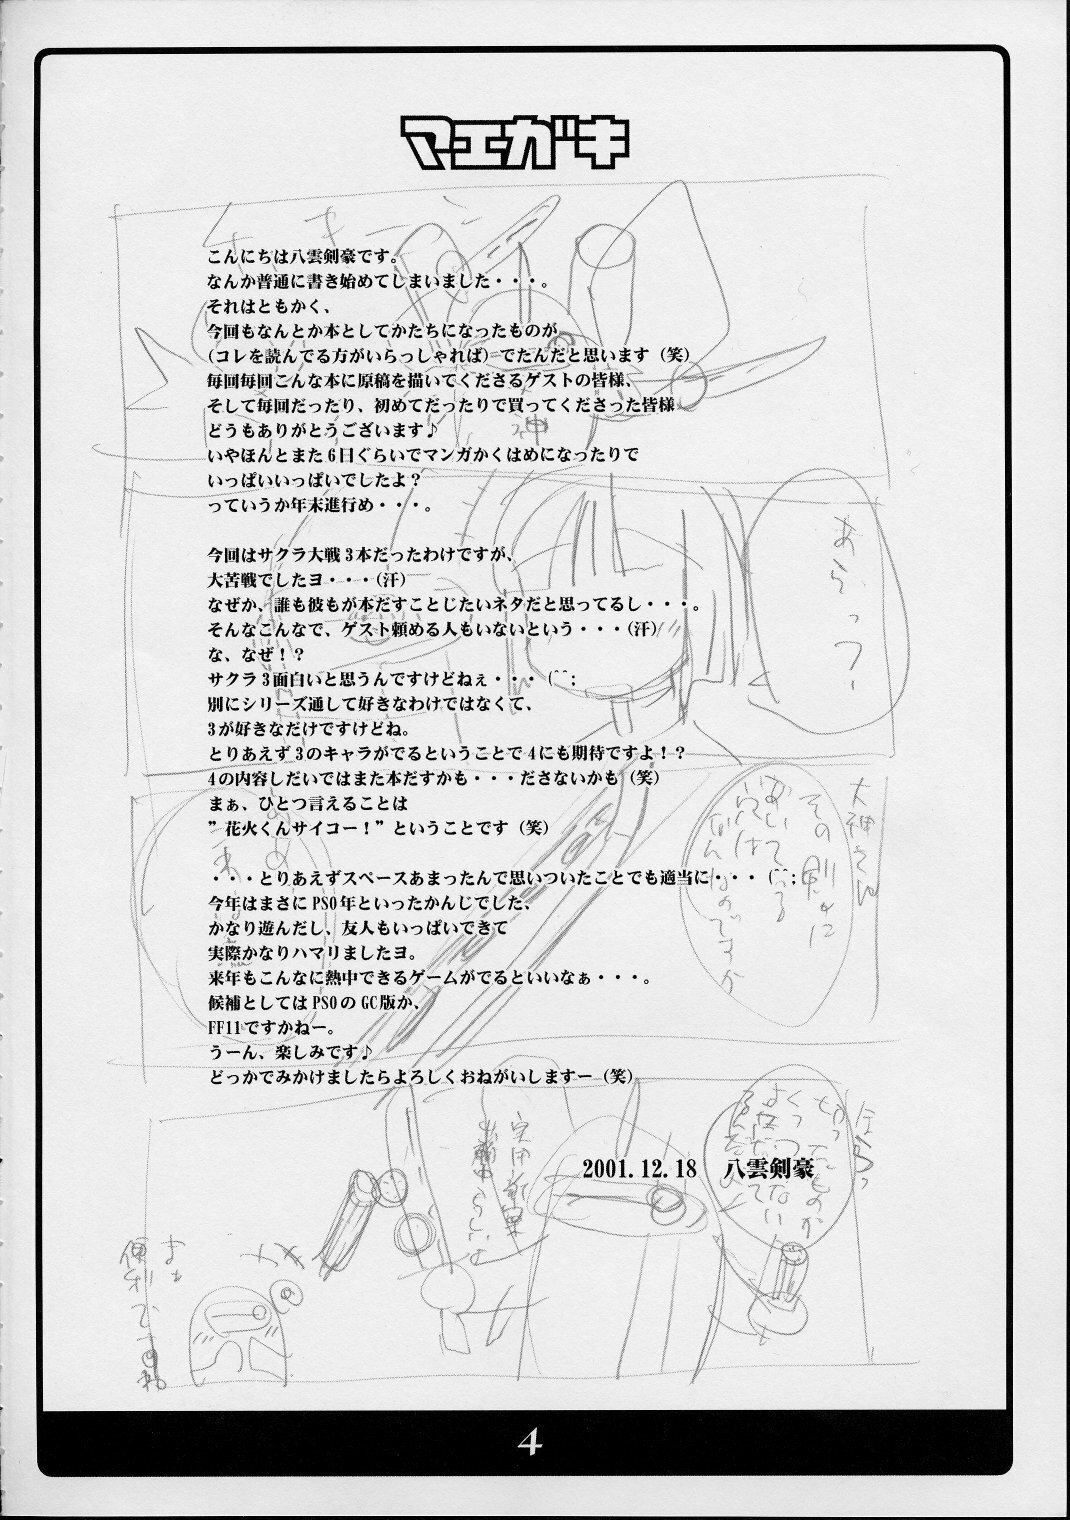 マエガキ
こんにちは八雲剣豪です。
なんか普通に書き始めてしまいました・・・。
それはともかく、
今回もなんとか本としてかたちになったものが
(コレを読んでる方がいらっしゃれば)でたんだと思います(笑)
毎回毎回こんな本に原稿を描いてくださるゲストの皆様、
そして毎回だったり、初めてだったりで買ってくださった皆様
どうもありがとうございます♪
いやほんとまた6日ぐらいでマンガかくはめになったりで
いっぱいいっぱいでしたよ？
っていうか年末進行め・・・。
今回はサクラ大戦3本だったわけですが、
大苦戦でしたヨ・・・(汗)
なぜか、誰も彼もが本だすことじたいネタだと思ってるし・・・。
そんなこんなで、ゲスト頼める人もいないという・・・(汗)
な、なぜ！？
サクラ3面白いと思うんですけどねぇ・・・(^^;
別にシリーズ通して好きなわけではなくて、
3が好きなだけですけどね。
とりあえず3のキャラがでるということで4にも期待ですよ！？
4の内容しだいではまた本だすかも・・・ださないかも(笑)
まぁ、ひとつ言えることは
”花火くんサイコー！”ということです(笑)
・・・とりあえずスペースあまったんで思いついたことでも適当に・・・(^^;
今年はまさにPSO年といったかんじでした、
かなり遊んだし、友人もいっぱいできて
実際かなりハマリましたヨ。
来年もこんなに熱中できるゲームがでるといいなぁ・・・。
候補としてはPSOのGC版か、
FF11ですかねー。
うーん、楽しみです♪
どっかでみかけましたらよろしくおねがいしますー(笑)
2001.12.18 八雲剣豪
あらっ
大神さん
その剣に
あいている
穴は
なんなのですか
まぁ
便利ですね
4